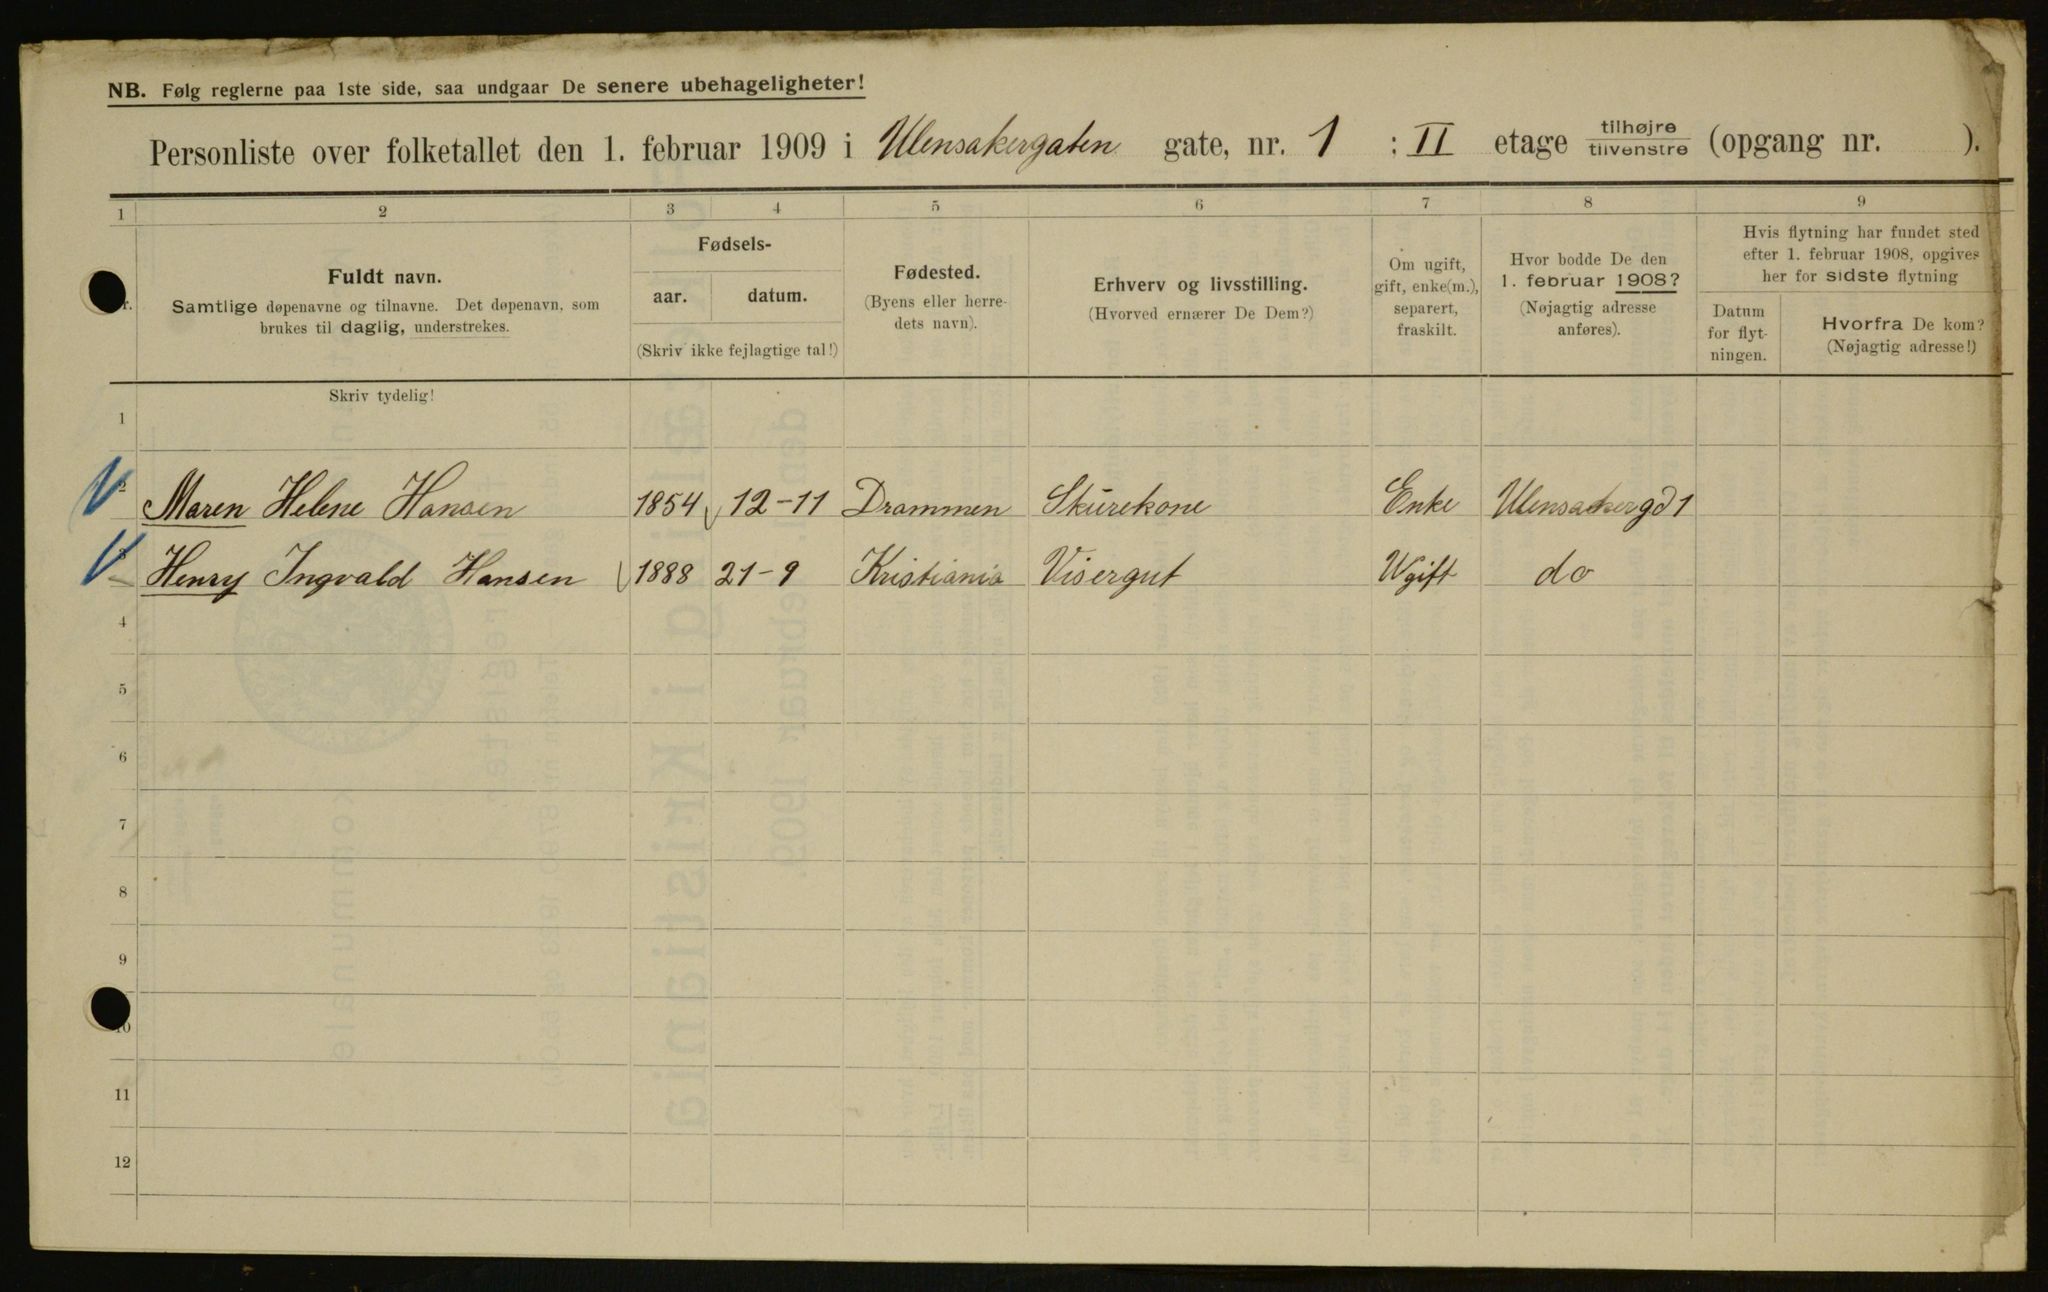 NB. Følg reglerne paa 1ste side, saa undgaar De senere ubehageligheter!
Personliste over folketallet den 1. februar 1909 i Ulensakergaten gate, nr. 1 : II etage tilhøjre tilvenstre (opgang nr. ).
1 2 3 4 5 6 7 8 9
Fuldt navn.
Samtlige døpenavne og tilnavne. Det døpenavn, som
brukes til daglig, understrekes.
Fødsels-
aar. datum.
(Skriv ikke fejlagtige tal!)
Fødested.
(Byens eller herre-
dets navn).
Erhverv og livsstilling.
(Hvorved ernærer De Dem?)
Om ugift,
gift, enke(m.),
separert,
fraskilt.
Hvor bodde De den
1. februar 1908?
(Nøjagtig adresse
anføres).
Hvis flytning har fundet sted
efter 1. februar 1908, opgives
her for sidste flytning
Datum
for flyt-
ningen.
Hvorfra De kom?
(Nøjagtig adresse!)
Skriv tydelig!
1
2 Maren Helene Hansen 1854 12-11 Drammen Skurekone Enke Ulensakergd 1
3 Henry Ingvald Hansen 1888 21-9 Kristiania Visergut Ugift do
4
5
6
7
8
9
10
11
12